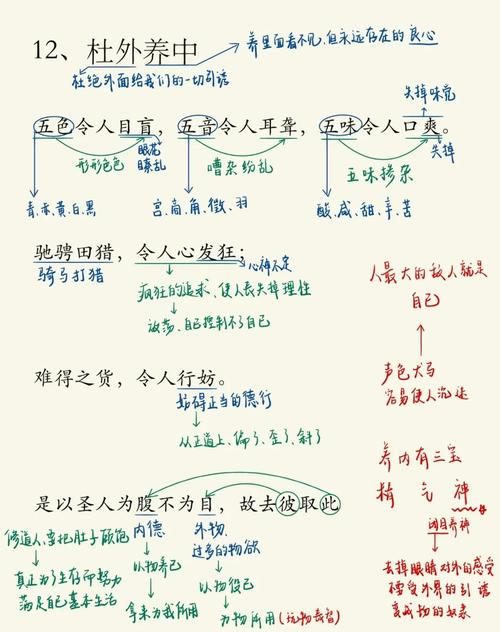 12、杜外养中
养里面看不见,但永远存在的良心
杜绝外面给我们的一切引诱
失掉味觉
五色令人目盲，五音令人耳聋，五味令人口爽。
形形色色
眼花
瞭乱
嘈杂纷乱
五味掺杂
失掉
青、赤、黄、白、黑
宫、商、角、徵、羽
酸、咸、甜、辛、苦
驰骋田猎，令人心发狂；
骑马打猎
心神不定
疯狂的追求、使人丧失掉理性
放荡、自己控制不了自己
人最大的敌人就是
自己
声色犬马
容易使人沉迷
难得之货，令人行妨。
妨碍正当的德行
从正道上、偏了、歪了、斜了
养内有三宝
精 气 神
闭目养神
去掉眼睛对外的感受
不受外界的引诱
变成物的奴隶
是以圣人为腹不为目，故去彼取此
修道人、要把肚子顾饱
真正为了生存而努力
满足自己基本生活
内德
以物养己
拿来为我所用
外物、
过多的物欲
以物役己
为物所用(玩物丧智)